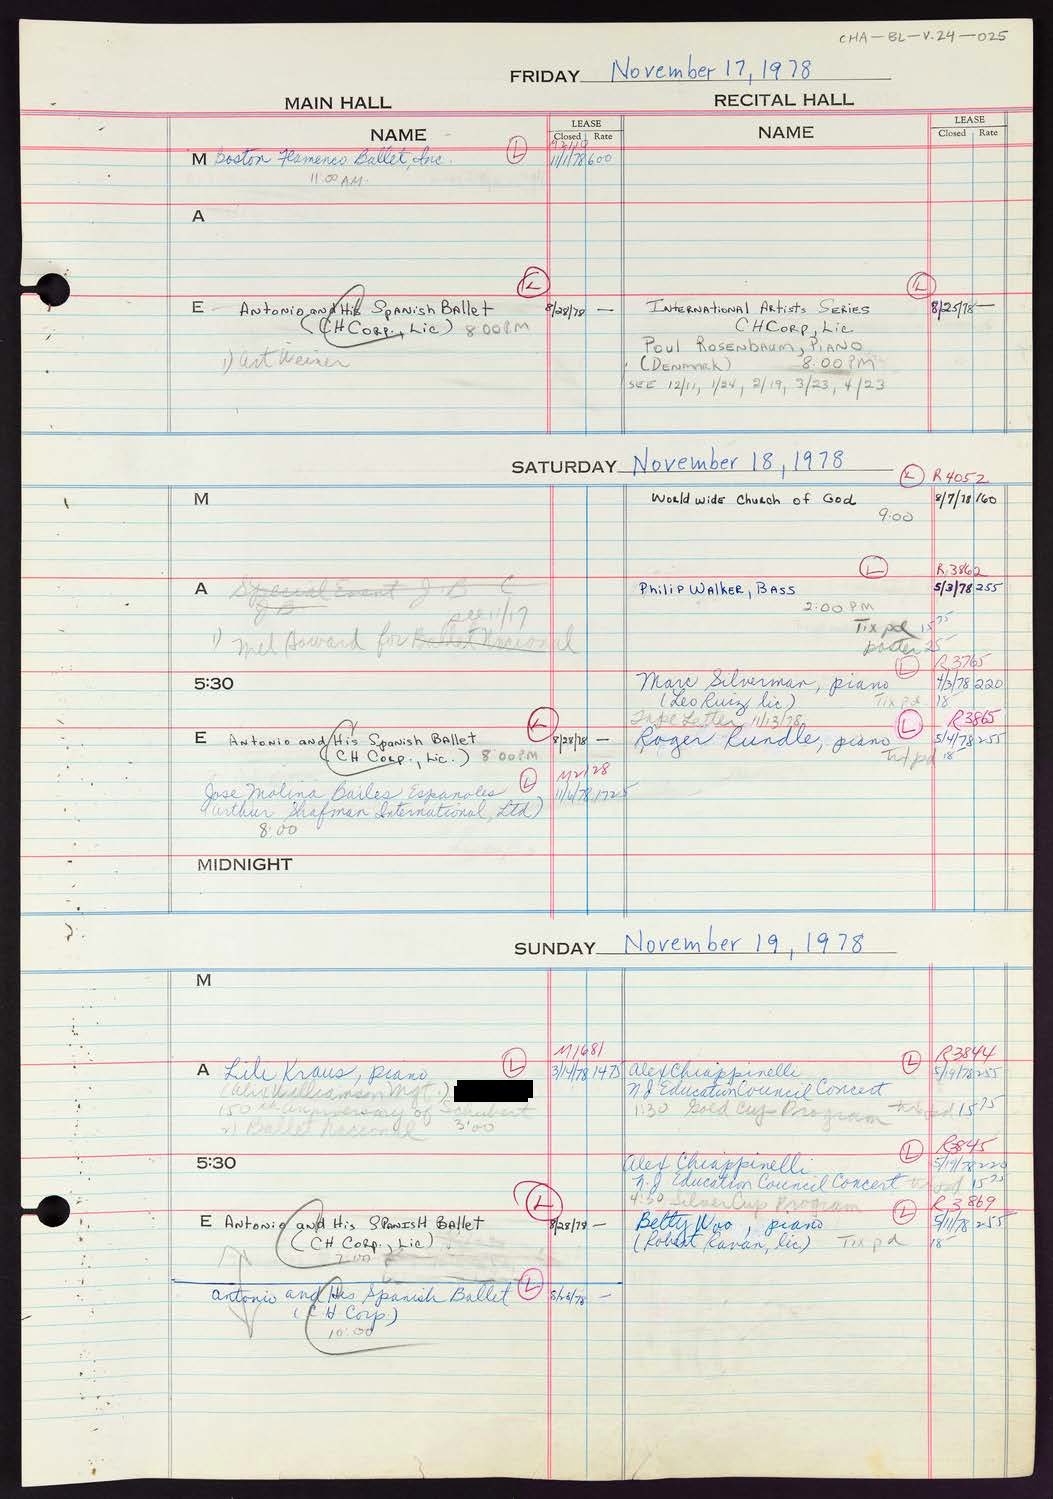 CHA-BL-V.24-025
FRIDAY November 17, 1978
MAIN HALL
RECITAL HALL
NAME
LEASE
Closed Rate
NAME
LEASE
Closed Rate
M Boston Flamenco Ballet, Inc. L 11/1/78 600
11:00 AM.
A
L
E Antonio and His Spanish Ballet 8/28/78 —
(CH Corp., Lic) 8:00PM
1) Art Weiner
L
International Artists Series 8/25/78 —
CHCorp, Lic
Poul Rosenbaum, Piano
(Denmark) 8:00 PM
SEE 12/11, 1/24, 2/19, 3/23, 4/23
SATURDAY November 18, 1978
M
L R4052
World wide Church of God 8/7/78 160
9:00
A Special Event J B C
J B see 11/17
1) Mel Howard for Ballet Nacional
L R3862
Philip Walker, Bass 5/3/78 255
2:00 PM
Tix pd 15 75
poster 25
5:30
L R3765
Marc Silverman, piano 4/3/78 220
(Leo Ruiz, lic) Tix pd. 18
Tape Letter 11/13/78
L
E Antonio and His Spanish Ballet 8/28/78 —
(CH Corp., Lic.) 8:00PM
L R3865
Roger Rundle, piano 5/4/78 255
Tix pd 18
L M2128
Jose Molina Bailes Espanoles 11/6/78 1725
(Arthur Shafman International, Ltd)
8:00
MIDNIGHT
SUNDAY November 19, 1978
M
L M1681
A Lili Kraus, piano 3/14/78 1475
(Alix Williamson Mgt.)
150th anniversary of Schubert
2) Ballet Nacional 3:00
L R3844
Alex Chiappinelli 5/19/78 255
NJ Education Council Concert
1:30 Gold Cup Program tix pd 15 75
5:30
L R3845
Alex Chiappinelli 5/19/78 220
N.J Education Council Concert tix pd 15 75
4:30 Silver Cup Program
L
E Antonio and His Spanish Ballet 8/28/78 —
(CH Corp., Lic)
7:00
L R3869
Betty Woo, piano 5/11/78 255
(Robert Kavan, lic) Tix pd 18
Antonio and His Spanish Ballet L 8/28/78 —
(C H Corp.)
10:00